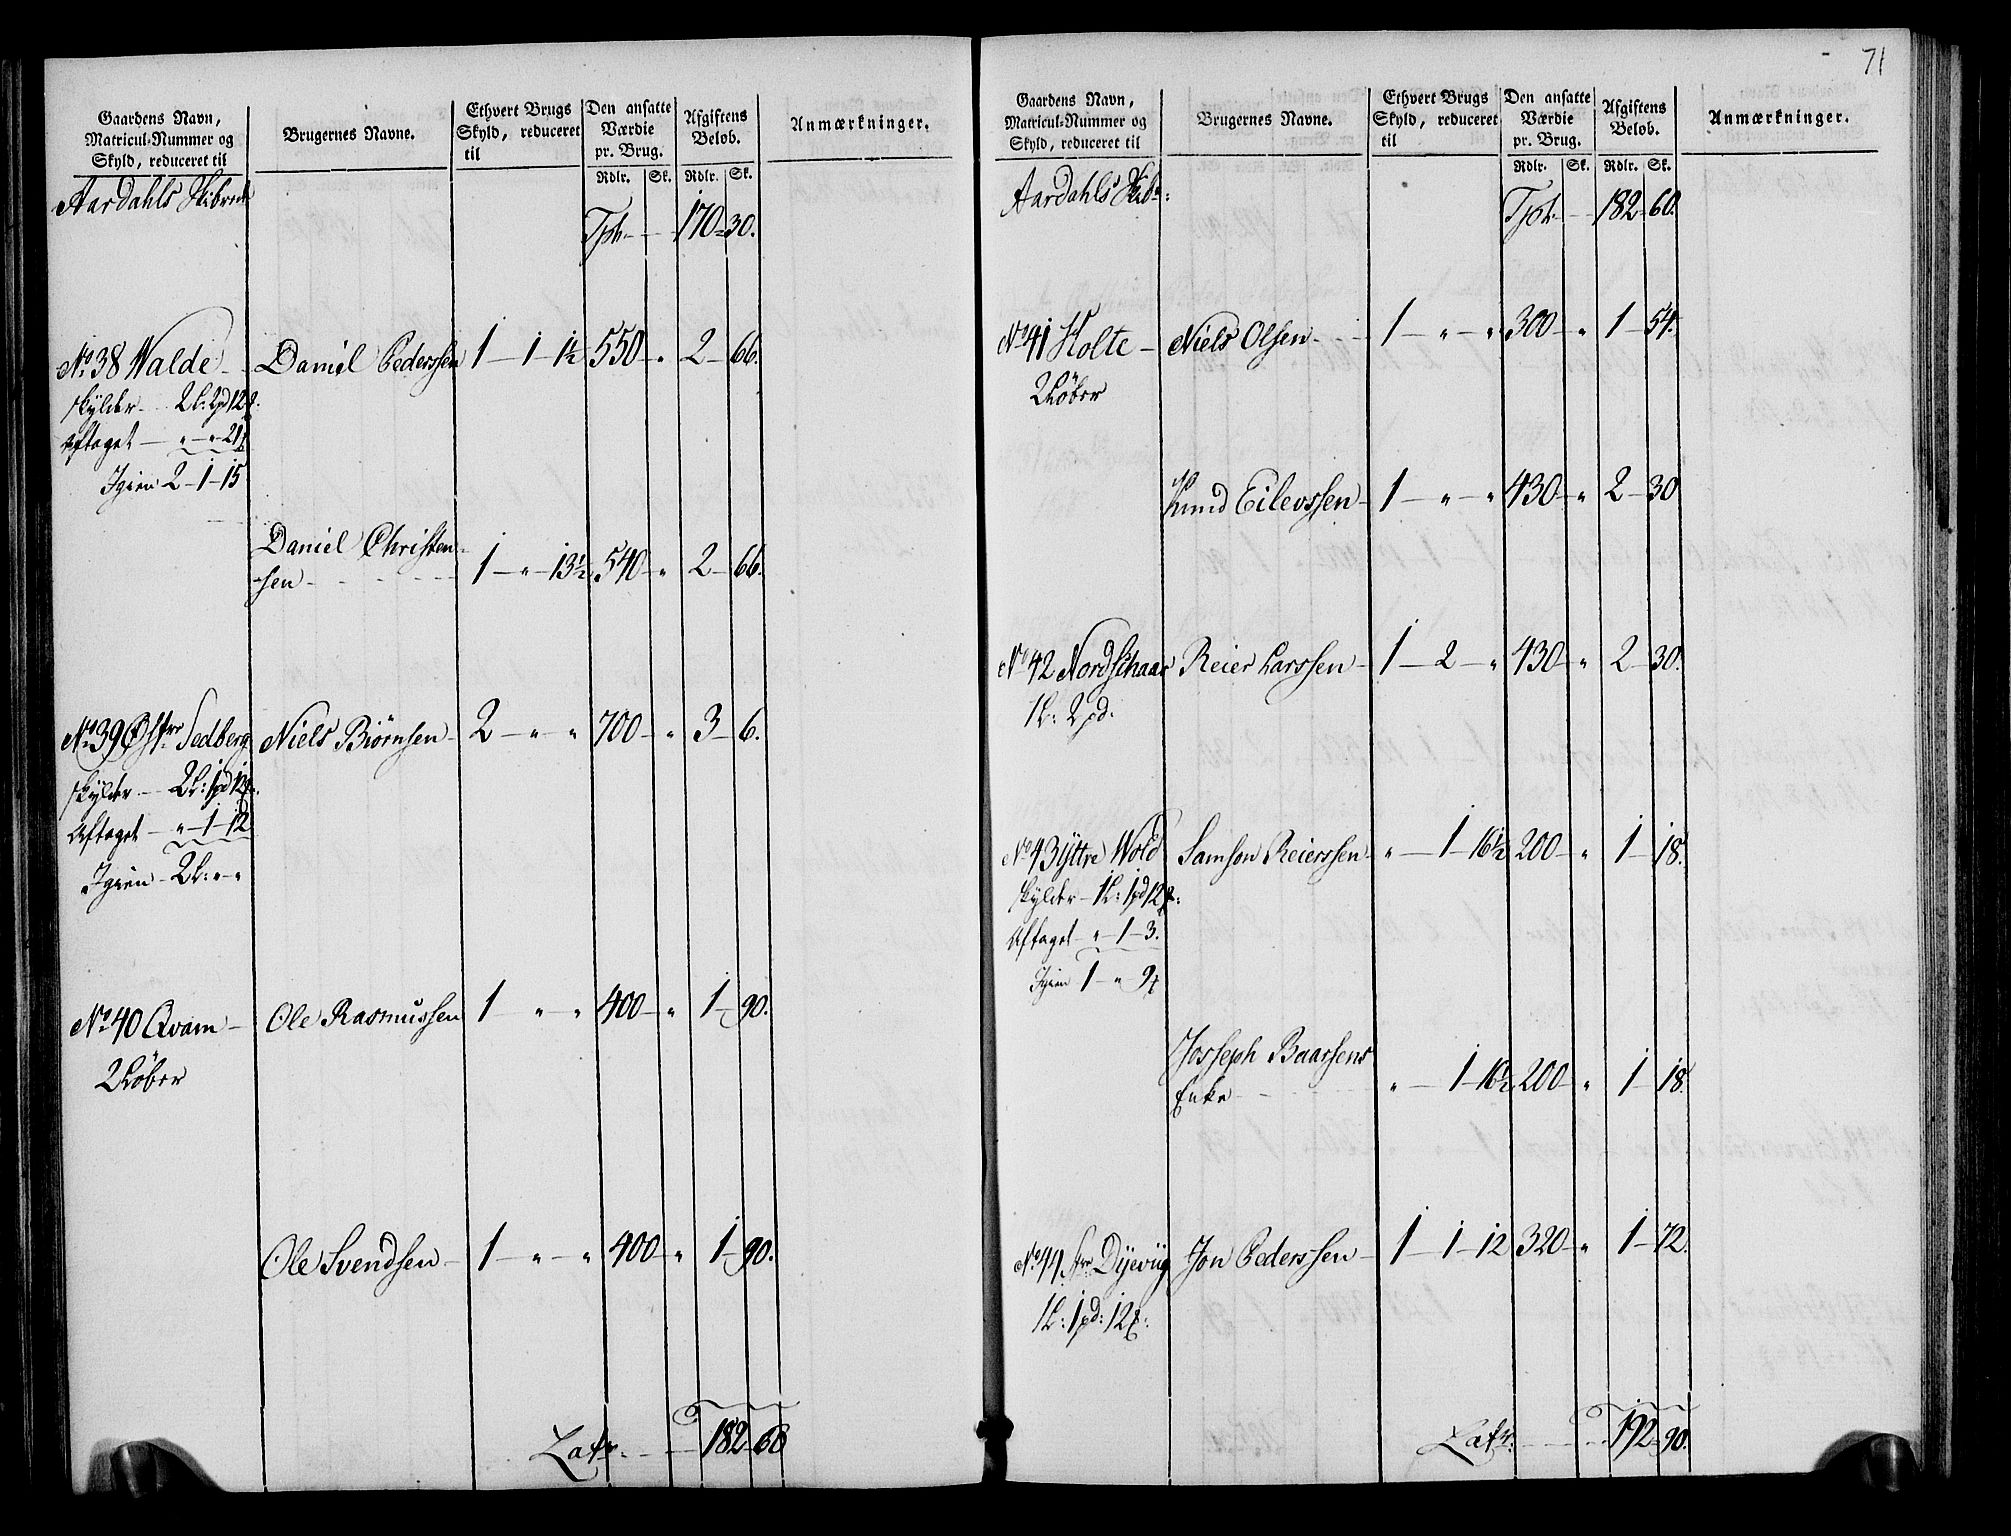 71
Gaardens Navn, Matricul-Nummer og Skyld, reduceret til
Brugernes Navne.
Ethvert Brugs Skyld, reduceret til
Den ansatte Værdie pr. Brug.
Afgiftens Beløb.
Anmærkninger.
Rdlr. Sk. Rdlr. Sk.
Aardahls Skibrede
Tpt. 170 30.
No. 38 Walde Daniel Pederssen 1 - 1 - 1½ 550 - " 2 - 66.
skylder 2 L: 2 pd 12
Aftaget - " - " - 21
Igien 2 - 1 - 15
Daniel Christen-
sen 1 - " - 13½ 540 - " 2 - 66.
No. 39 Østre Sedberg Niels Biørnsen 2 - " " 700 - " 3 - 6.
skylder 2 L: 1 pd 12
Aftaget - " - 1 - 12
Igien - 2 L: " - "
No. 40 Qvam Ole Rasmussen 1 " - " 400 - " 1 - 90.
2 Løber
Ole Svendsen 1 - " - " 400 - " 1 - 90.
Latr. 182 - 60
Gaardens Navn, Matricul-Nummer og Skyld, reduceret til
Brugernes Navne.
Ethvert Brugs Skyld, reduceret til
Den ansatte Værdie pr. Brug.
Afgiftens Beløb.
Anmærkninger.
Rdlr. Sk. Rdlr. Sk.
Aardahls Skibr:
Tpt. 182 - 60.
No. 41 Holte Niels Olsen 1 - " - " 300 - " 1 - 54.
2 Løber
Knud Eilevssen 1 - " - " 430 - " 2 - 30
No. 42 Nordschaar Reier Larssen 1 - 2 - " 430 - " 2 - 30.
1 L: 2 pd:
No. 43 Yttre Wold Samson Reierssen " - 1 - 16½ 200 - " 1 - 18.
skylder - 1 L: 1 pd 12
Aftaget - " - 1 - 3.
Igien 1 - " 9
Josseph Baarsens
Enke " - 1 - 16½ 200 - " 1 - 18.
No. 44 Dyevig Jon Pederssen 1 - 1 - 12 320 - " 1 - 72.
1 L: 1 pd: 12
Latr. 192 - 90.